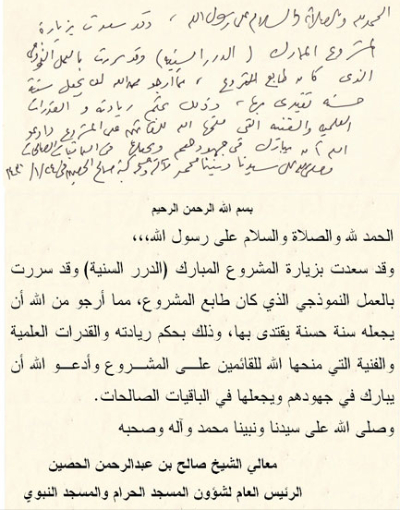 الحمد لله والصلاة والسلام على رسول الله ، وقد سعدت بزيارة
المشروع المبارك (الدرر السنية) وقد سررت بالعمل النموذجي
الذي كان طابع المشروع ، مما أرجو من الله أن يجعله سنة
حسنة يقتدى بها ، وذلك بحكم ريادته و القدرات
العلمية والفنية التي منحها الله للقائمين على المشروع وأدعو
الله أن يبارك في جهودهم ويجعلها في الباقيات الصالحات
وصلى الله على سيدنا ونبينا محمد وآله وصحبه صالح الحصين
بسم الله الرحمن الرحيم
الحمد لله والصلاة والسلام على رسول الله،،،
وقد سعدت بزيارة المشروع المبارك (الدرر السنية) وقد سررت
بالعمل النموذجي الذي كان طابع المشروع، مما أرجو من الله أن
يجعله سنة حسنة يقتدى بها، وذلك بحكم ريادته والقدرات العلمية
والفنية التي منحها الله للقائمين علـــى المشـــروع وأدعـــو الله أن
يبارك في جهودهم ويجعلها في الباقيات الصالحات.
وصلى الله على سيدنا ونبينا محمد وآله وصحبه
معالي الشيخ صالح بن عبدالرحمن الحصين
الرئيس العام لشؤون المسجد الحرام والمسجد النبوي